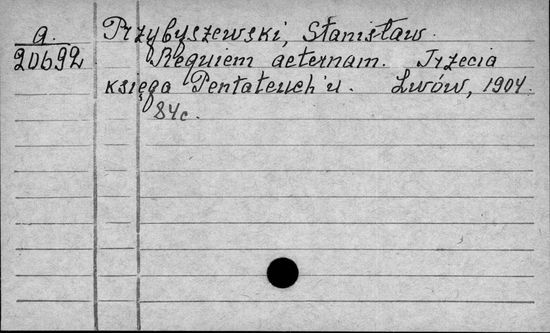 a.
20692
Przybyszewski, Stanisław.
Requiem aeternam. Trzecia
księga Pentateuch'u. Lwów, 1904.
84c.